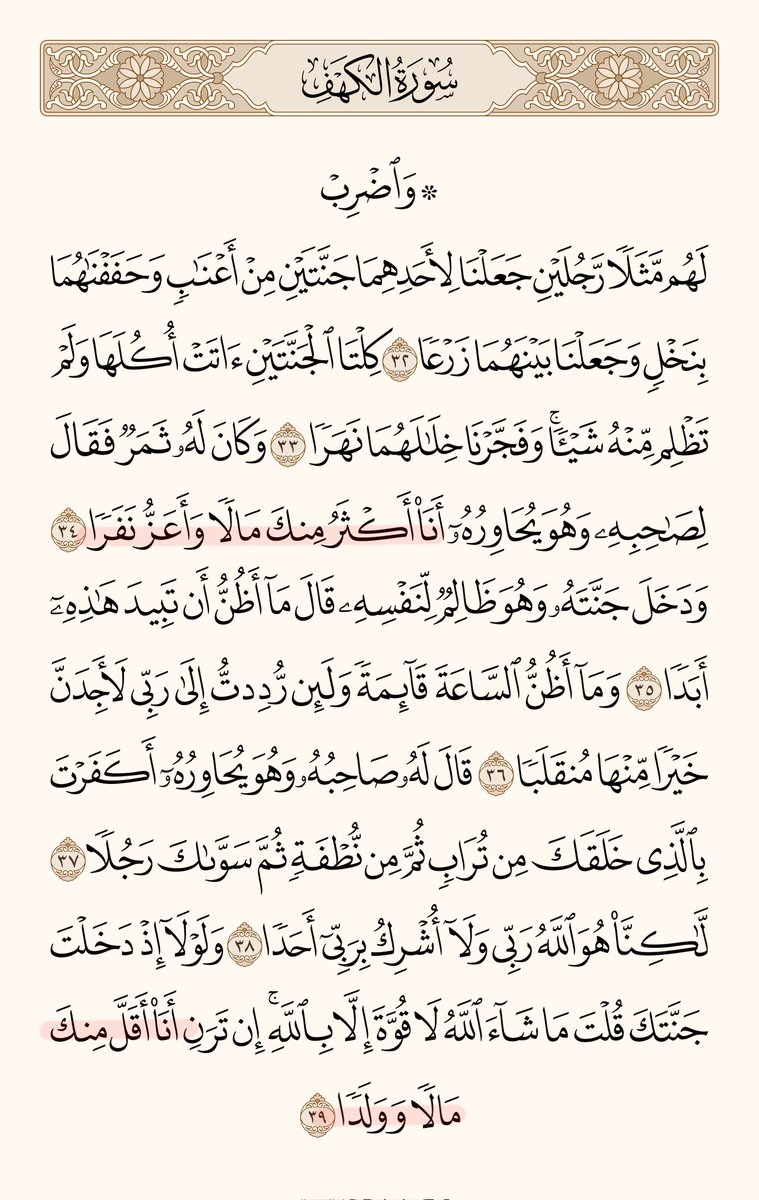 سُورَةُ الكَهۡفِ
* وَٱضۡرِبۡ
لَهُم مَّثَلٗا رَّجُلَيۡنِ جَعَلۡنَا لِأَحَدِهِمَا جَنَّتَيۡنِ مِنۡ أَعۡنَٰبٖ وَحَفَفۡنَٰهُمَا
بِنَخۡلٖ وَجَعَلۡنَا بَيۡنَهُمَا زَرۡعٗا ٣٢ كِلۡتَا ٱلۡجَنَّتَيۡنِ ءَاتَتۡ أُكُلَهَا وَلَمۡ
تَظۡلِم مِّنۡهُ شَيۡـٔٗاۚ وَفَجَّرۡنَا خِلَٰلَهُمَا نَهَرٗا ٣٣ وَكَانَ لَهُۥ ثَمَرٞ فَقَالَ
لِصَٰحِبِهِۦ وَهُوَ يُحَاوِرُهُۥٓ أَنَا۠ أَكۡثَرُ مِنكَ مَالٗا وَأَعَزُّ نَفَرٗا ٣٤
وَدَخَلَ جَنَّتَهُۥ وَهُوَ ظَالِمٞ لِّنَفۡسِهِۦ قَالَ مَآ أَظُنُّ أَن تَبِيدَ هَٰذِهِۦٓ
أَبَدٗا ٣٥ وَمَآ أَظُنُّ ٱلسَّاعَةَ قَآئِمَةٗ وَلَئِن رُّدِدتُّ إِلَىٰ رَبِّي لَأَجِدَنَّ
خَيۡرٗا مِّنۡهَا مُنقَلَبٗا ٣٦ قَالَ لَهُۥ صَاحِبُهُۥ وَهُوَ يُحَاوِرُهُۥٓ أَكَفَرۡتَ
بِٱلَّذِي خَلَقَكَ مِن تُرَابٖ ثُمَّ مِن نُّطۡفَةٖ ثُمَّ سَوَّىٰكَ رَجُلٗا ٣٧
لَّٰكِنَّا۠ هُوَ ٱللَّهُ رَبِّي وَلَآ أُشۡرِكُ بِرَبِّيٓ أَحَدٗا ٣٨ وَلَوۡلَآ إِذۡ دَخَلۡتَ
جَنَّتَكَ قُلۡتَ مَا شَآءَ ٱللَّهُ لَا قُوَّةَ إِلَّا بِٱللَّهِۚ إِن تَرَنِ أَنَا۠ أَقَلَّ مِنكَ
مَالٗا وَوَلَدٗا ٣٩